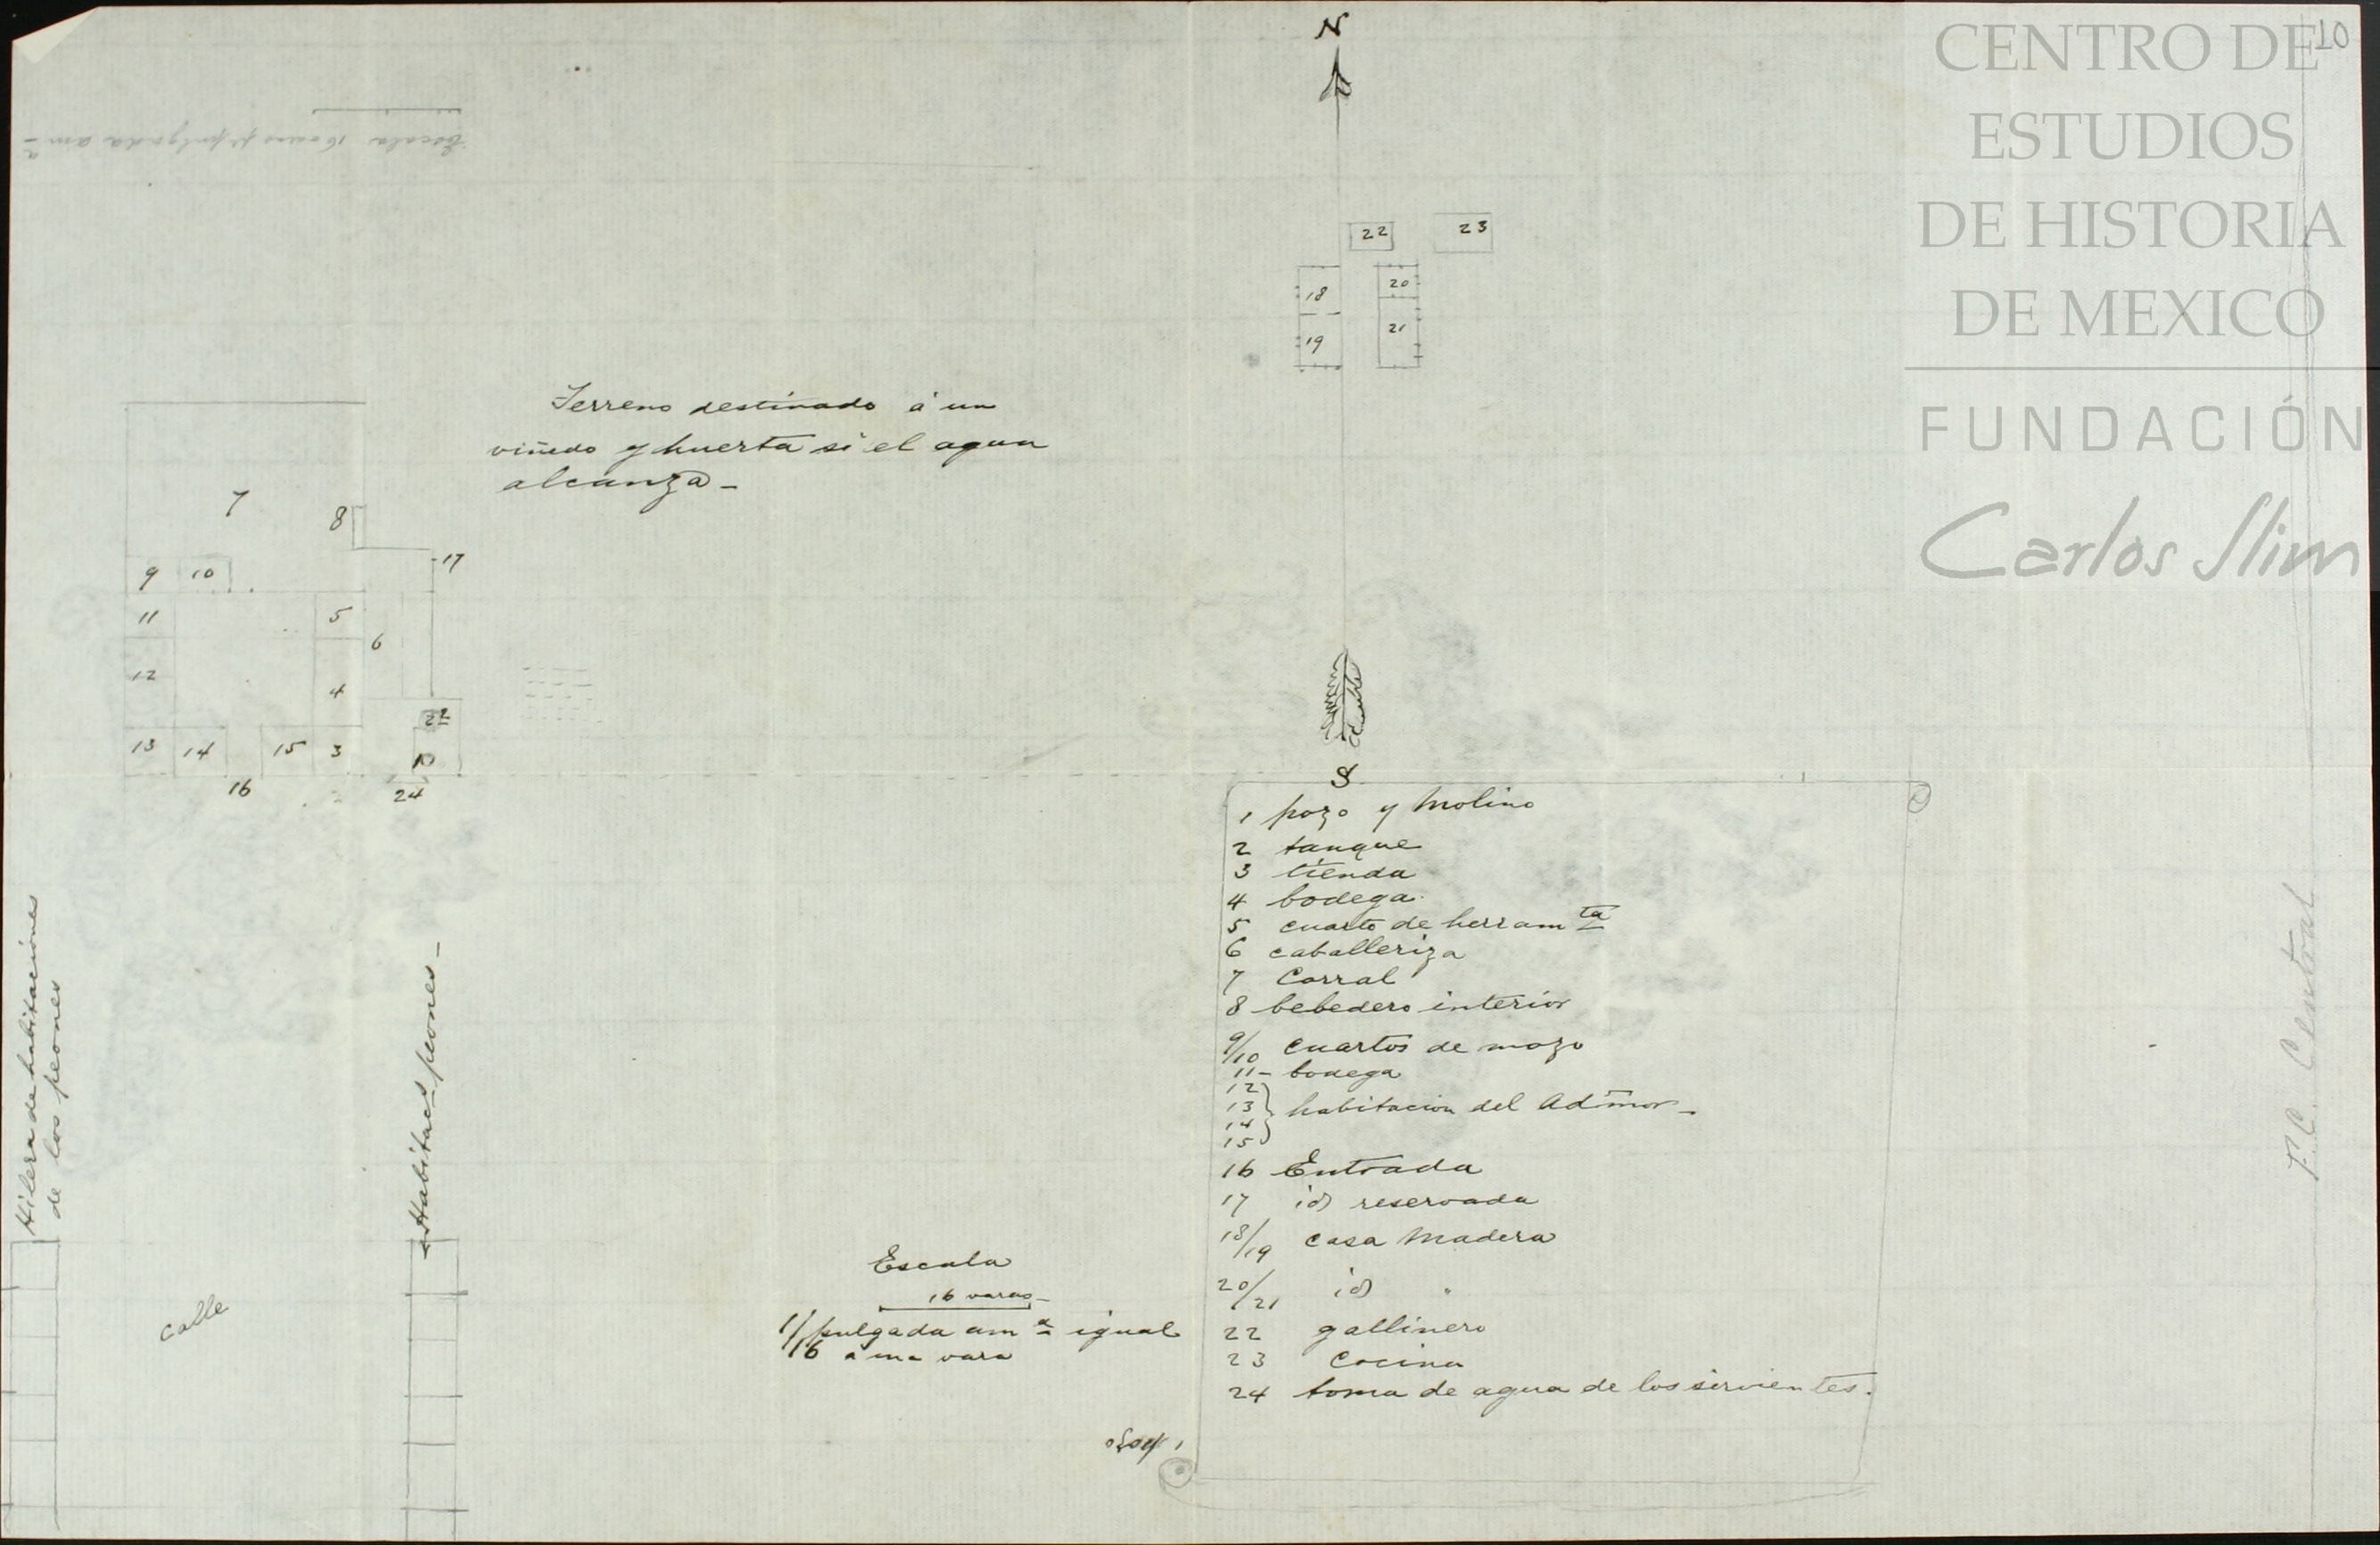 N
10
CENTRO DE
ESTUDIOS
DE HISTORIA
DE MEXICO
FUNDACIÓN
Carlos Slim
Escala 16 varas pr pulgada amª
22
23
18
20
19
21
Terreno destinado á un
viñedo y huerta si el agua
alcanza -
7
8
17
9
10
11
5
6
12
4
22
13
14
15
3
16
24
S
1 pozo y Molino
2 tanque
3 tienda
4 bodega
5 cuarto de herramta
6 caballeriza
7 Corral
8 bebedero interior
9/10 cuartos de mozo
11 - bodega
12
13 habitacion del Admor -
14
15
16 Entrada
17 id reservada
18/19 casa Madera
20/21 id "
22 gallinero
23 Cocina
24 toma de agua de los sirvientes.
Hilera de habitaciones
de los peones
Habitaes peones -
calle
Escala
16 varas -
1/16 pulgada amª igual
a una vara
1 pozo
F.C. Central